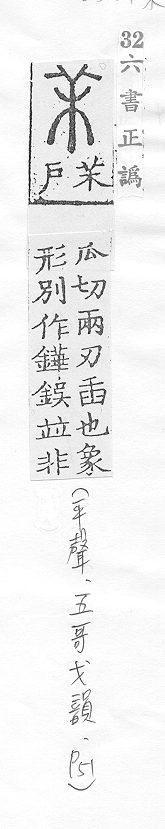 32六書正譌
𦬒
茉戶
瓜切兩刃臿也象
形別作鏵鋘並非
(平聲、五哥戈韻、P51)